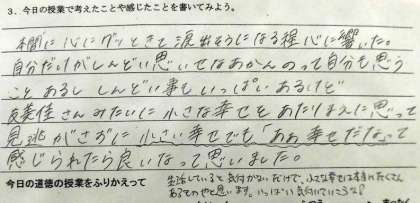 3. 今日の授業で考えたことや感じたことを書いてみよう。
本間に心にグッときて涙出そうになる程心に響いた。
自分だけがしんどい思いせなあかんのって自分も思う
ことあるし しんどい事もいっぱいあるけど
友美佳さんみたいに小さな幸せをあたりまえに思って
見逃がさずに小さい幸せでも「あぁ幸せだな」って
感じられたら良いなって思いました。
今日の道徳の授業をふりかえって
生活していると気付かないだけで、小さな幸せは本当にたくさん
あるのやと思います。いっぱい気付いていこうね！